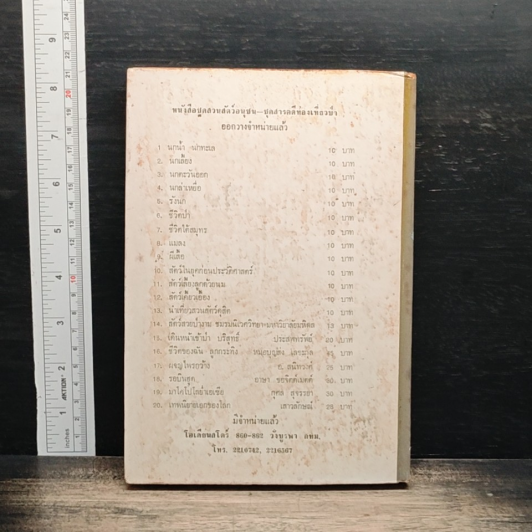 หนังสือชุดสวนสัตว์อนุชน—ชุดสารคดีท่องเที่ยวป่า
ออกวางจำหน่ายแล้ว
1. นกน้ำ นกทะเล 10 บาท
2. นกเลี้ยง 10 บาท
3. นกตะวันออก 10 บาท
4. นกล่าเหยื่อ 10 บาท
5. รังนก 10 บาท
6. ชีวิตป่า 10 บาท
7. ชีวิตใต้สมุทร 10 บาท
8. แมลง 10 บาท
9. ผีเสื้อ 10 บาท
10. สัตว์ในยุคก่อนประวัติศาสตร์ 10 บาท
11. สัตว์เลี้ยงลูกด้วยนม 10 บาท
12. สัตว์เคี้ยวเอื้อง 10 บาท
13. นำเที่ยวสวนสัตว์ดุสิต 10 บาท
14. สัตว์สวยป่างาม ชมรมนิเวศวิทยา-มหาวิทยาลัยมหิดล บาท
15. เดินหนเข้าป่า บริสุทธิ์ ประสพทรัพย์ 20 บาท
16. ชีวิตของฉัน ลูกกระทิง หมอบุญส่ง เลขะกุล บาท
17. ผจญไพรยะช้าง บาท
18. รอยตีน อาษา บาท
19. บาท
20. เทพนิยาย ของโลก เสาวลักษณ์ บาท
มีจำหน่ายแล้ว
โอเดียนสโตร์ 860-862 วังบูรพา กทม.
โทร. 2216742, 2216567
inches
cm
AKTION
1 2 3 4 5 6 7 8 9
1 2 3 4 5 6 7 8 9 10 11 12 13 14 15 16 17 18 19 20